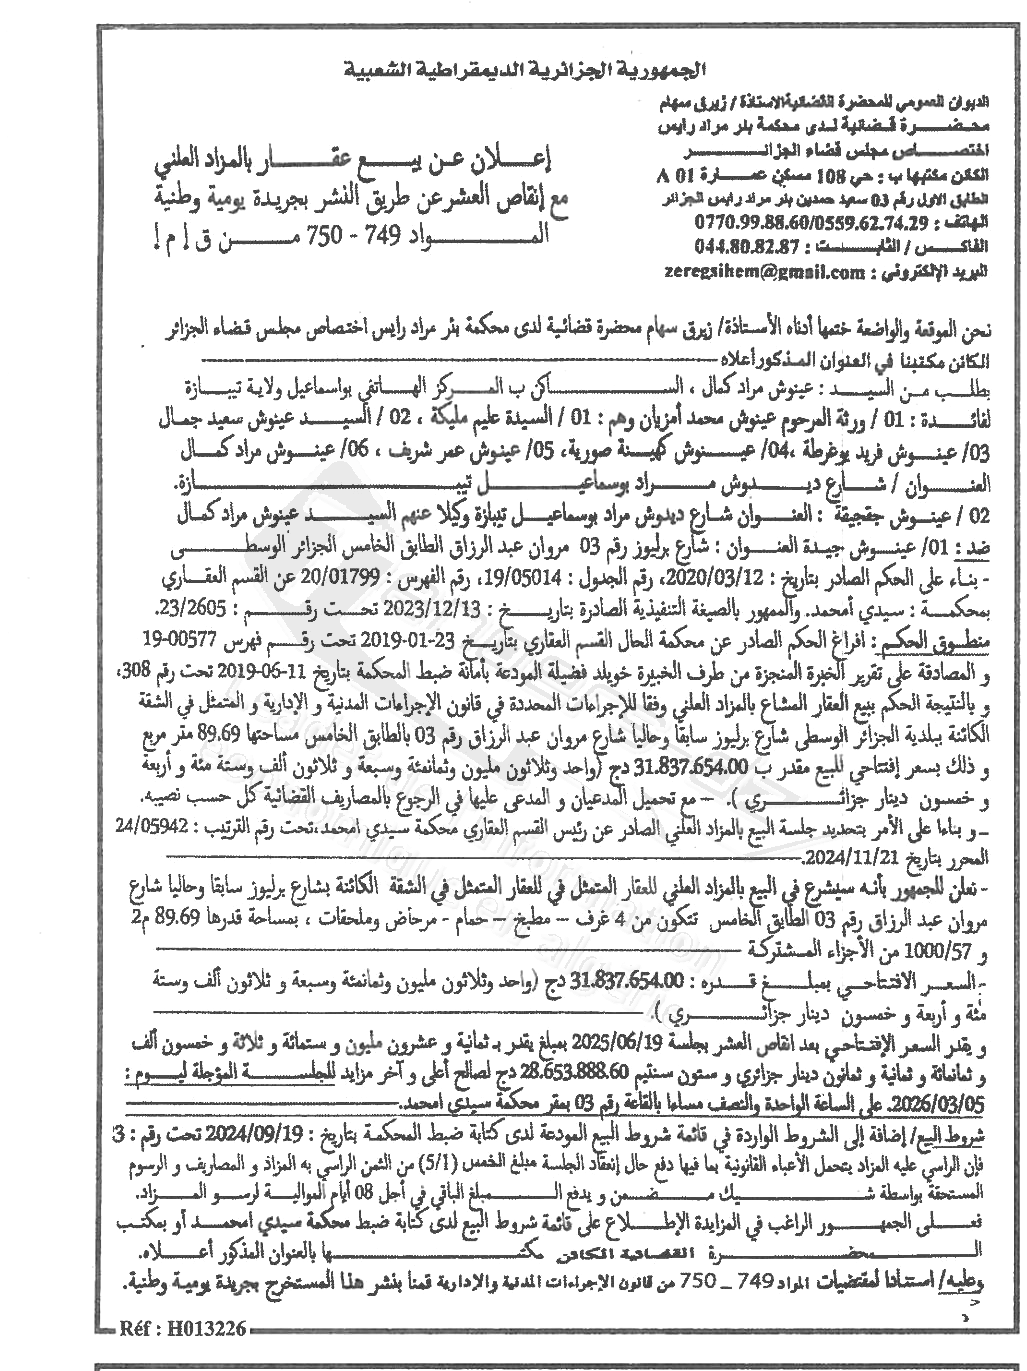 الجمهورية الجزائرية الديمقراطية الشعبية
الديوان العمومي للمحضرة القضائية الاستاذة / زيرق سهام
محضرة قضائية لدى محكمة بئر مراد رايس
اختصاص مجلس قضاء الجزائر
الكائن مكتبها ب : حي 108 مسكن عمارة A 01
الطابق الاول رقم 03 سعيد حمدين بئر مراد رايس الجزائر
الهاتف : 0770.99.88.60/0559.62.74.29
الفاكس / الثابت : 044.80.82.87
البريد الإلكتروني : zeregsihem@gmail.com
إعلان عن بيع عقار بالمزاد العلني
مع إنقاص العشر عن طريق النشر بجريدة يومية وطنية
المواد 749 - 750 من ق إ م إ
نحن الموقعة والواضعة ختمها أدناه الأستاذة/ زيرق سهام محضرة قضائية لدى محكمة بئر مراد رايس اختصاص مجلس قضاء الجزائر
الكائن مكتبنا في العنوان المذكور أعلاه
بطلب من السيد : عينوش مراد كمال ، الساكن ب المركز الهاتفي بواسماعيل ولاية تيبازة
لفائدة : 01 / ورثة المرحوم عينوش محمد أمزيان وهم : 01 / السيدة عليم مليكة ، 02 / السيد عينوش سعيد جمال
03/ عينوش فريد يوغرطة ،04/ عينوش كهينة صورية، 05/ عينوش عمر شريف ، 06/ عينوش مراد كمال
العنوان / شارع ديدوش مراد بوسماعيل تيبازة.
02 / عينوش جقجيقة : العنوان شارع ديدوش مراد بوسماعيل تيبازة وكيلا عنهم السيد عينوش مراد كمال
ضد : 01/ عينوش جيدة العنوان : شارع برليوز رقم 03 مروان عبد الرزاق الطابق الخامس الجزائر الوسطى
- بناء على الحكم الصادر بتاريخ : 2020/03/12، رقم الجدول : 19/05014، رقم الفهرس : 20/01799 عن القسم العقاري
بمحكمة : سيدي أمحمد. والممهور بالصيغة التنفيذية الصادرة بتاريخ : 2023/12/13 تحت رقم : 23/2605.
منطوق الحكم : افراغ الحكم الصادر عن محكمة الحال القسم العقاري بتاريخ 23-01-2019 تحت رقم فهرس 00577-19
و المصادقة على تقرير الخبرة المنجزة من طرف الخبيرة خويلد فضيلة المودعة بأمانة ضبط المحكمة بتاريخ 11-06-2019 تحت رقم 308،
و بالنتيجة الحكم ببيع العقار المشاع بالمزاد العلني وفقا للإجراءات المحددة في قانون الإجراءات المدنية و الإدارية و المتمثل في الشقة
الكائنة ببلدية الجزائر الوسطى شارع برليوز سابقا وحاليا شارع مروان عبد الرزاق رقم 03 بالطابق الخامس مساحتها 89.69 متر مربع
و ذلك بسعر إفتتاحي للبيع مقدر ب 31.837.654.00 دج (واحد وثلاثون مليون وثمانمئة وسبعة و ثلاثون ألف وستة مئة و أربعة
و خمسون دينار جزائري ). – مع تحميل المدعيان و المدعى عليها في الرجوع بالمصاريف القضائية كل حسب نصيبه.
– و بناءا على الأمر بتحديد جلسة البيع بالمزاد العلني الصادر عن رئيس القسم العقاري محكمة سيدي امحمد،تحت رقم الترتيب : 24/05942
المحرر بتاريخ 2024/11/21.
- نعلن للجمهور بأنه سيشرع في البيع بالمزاد العلني للعقار المتمثل في للعقار المتمثل في الشقة الكائنة بشارع برليوز سابقا وحاليا شارع
مروان عبد الرزاق رقم 03 الطابق الخامس تتكون من 4 غرف – مطبخ – حمام - مرحاض وملحقات ، بمساحة قدرها 89.69 م2
و 1000/57 من الأجزاء المشتركة
-.السعر الافتتاحي بمبلغ قدره : 31.837.654.00 دج (واحد وثلاثون مليون وثمانمئة وسبعة و ثلاثون ألف وستة
مئة و أربعة و خمسون دينار جزائري ).
و يقدر السعر الإفتتاحي بعد انقاص العشر بجلسة 2025/06/19 بمبلغ يقدر بـ ثمانية و عشرون مليون و ستمائة و ثلاثة و خمسون ألف
و ثمانمائة و ثمانية و ثمانون دينار جزائري و ستون سنتيم 28.653.888.60 دج لصالح أعلى و آخر مزايد للجلسة المؤجلة ليوم :
2026/03/05. على الساعة الواحدة والنصف مساءا بالقاعة رقم 03 بمقر محكمة سيدي امحمد.
شروط البيع/ إضافة إلى الشروط الواردة في قائمة شروط البيع المودعة لدى كتابة ضبط المحكمة بتاريخ : 2024/09/19 تحت رقم :
فإن الراسي عليه المزاد يتحمل الأعباء القانونية بما فيها دفع حال إنعقاد الجلسة مبلغ الخمس (5/1) من الثمن الراسي به المزاد و المصاريف و الرسوم
المستحقة بواسطة شيك مضمن و يدفع المبلغ الباقي في أجل 08 أيام الموالية لرسو المزاد.
فعلى الجمهور الراغب في المزايدة الإطلاع على قائمة شروط البيع لدى كتابة ضبط محكمة سيدي امحمد أو بمكتب
المحضرة القضائية الكائن مكتبها بالعنوان المذكور أعلاه.
وعليه/ استنادا لمقتضيات المواد 749 – 750 من قانون الإجراءات المدنية والإدارية قمنا بنشر هذا المستخرج بجريدة يومية وطنية.
Réf : H013226